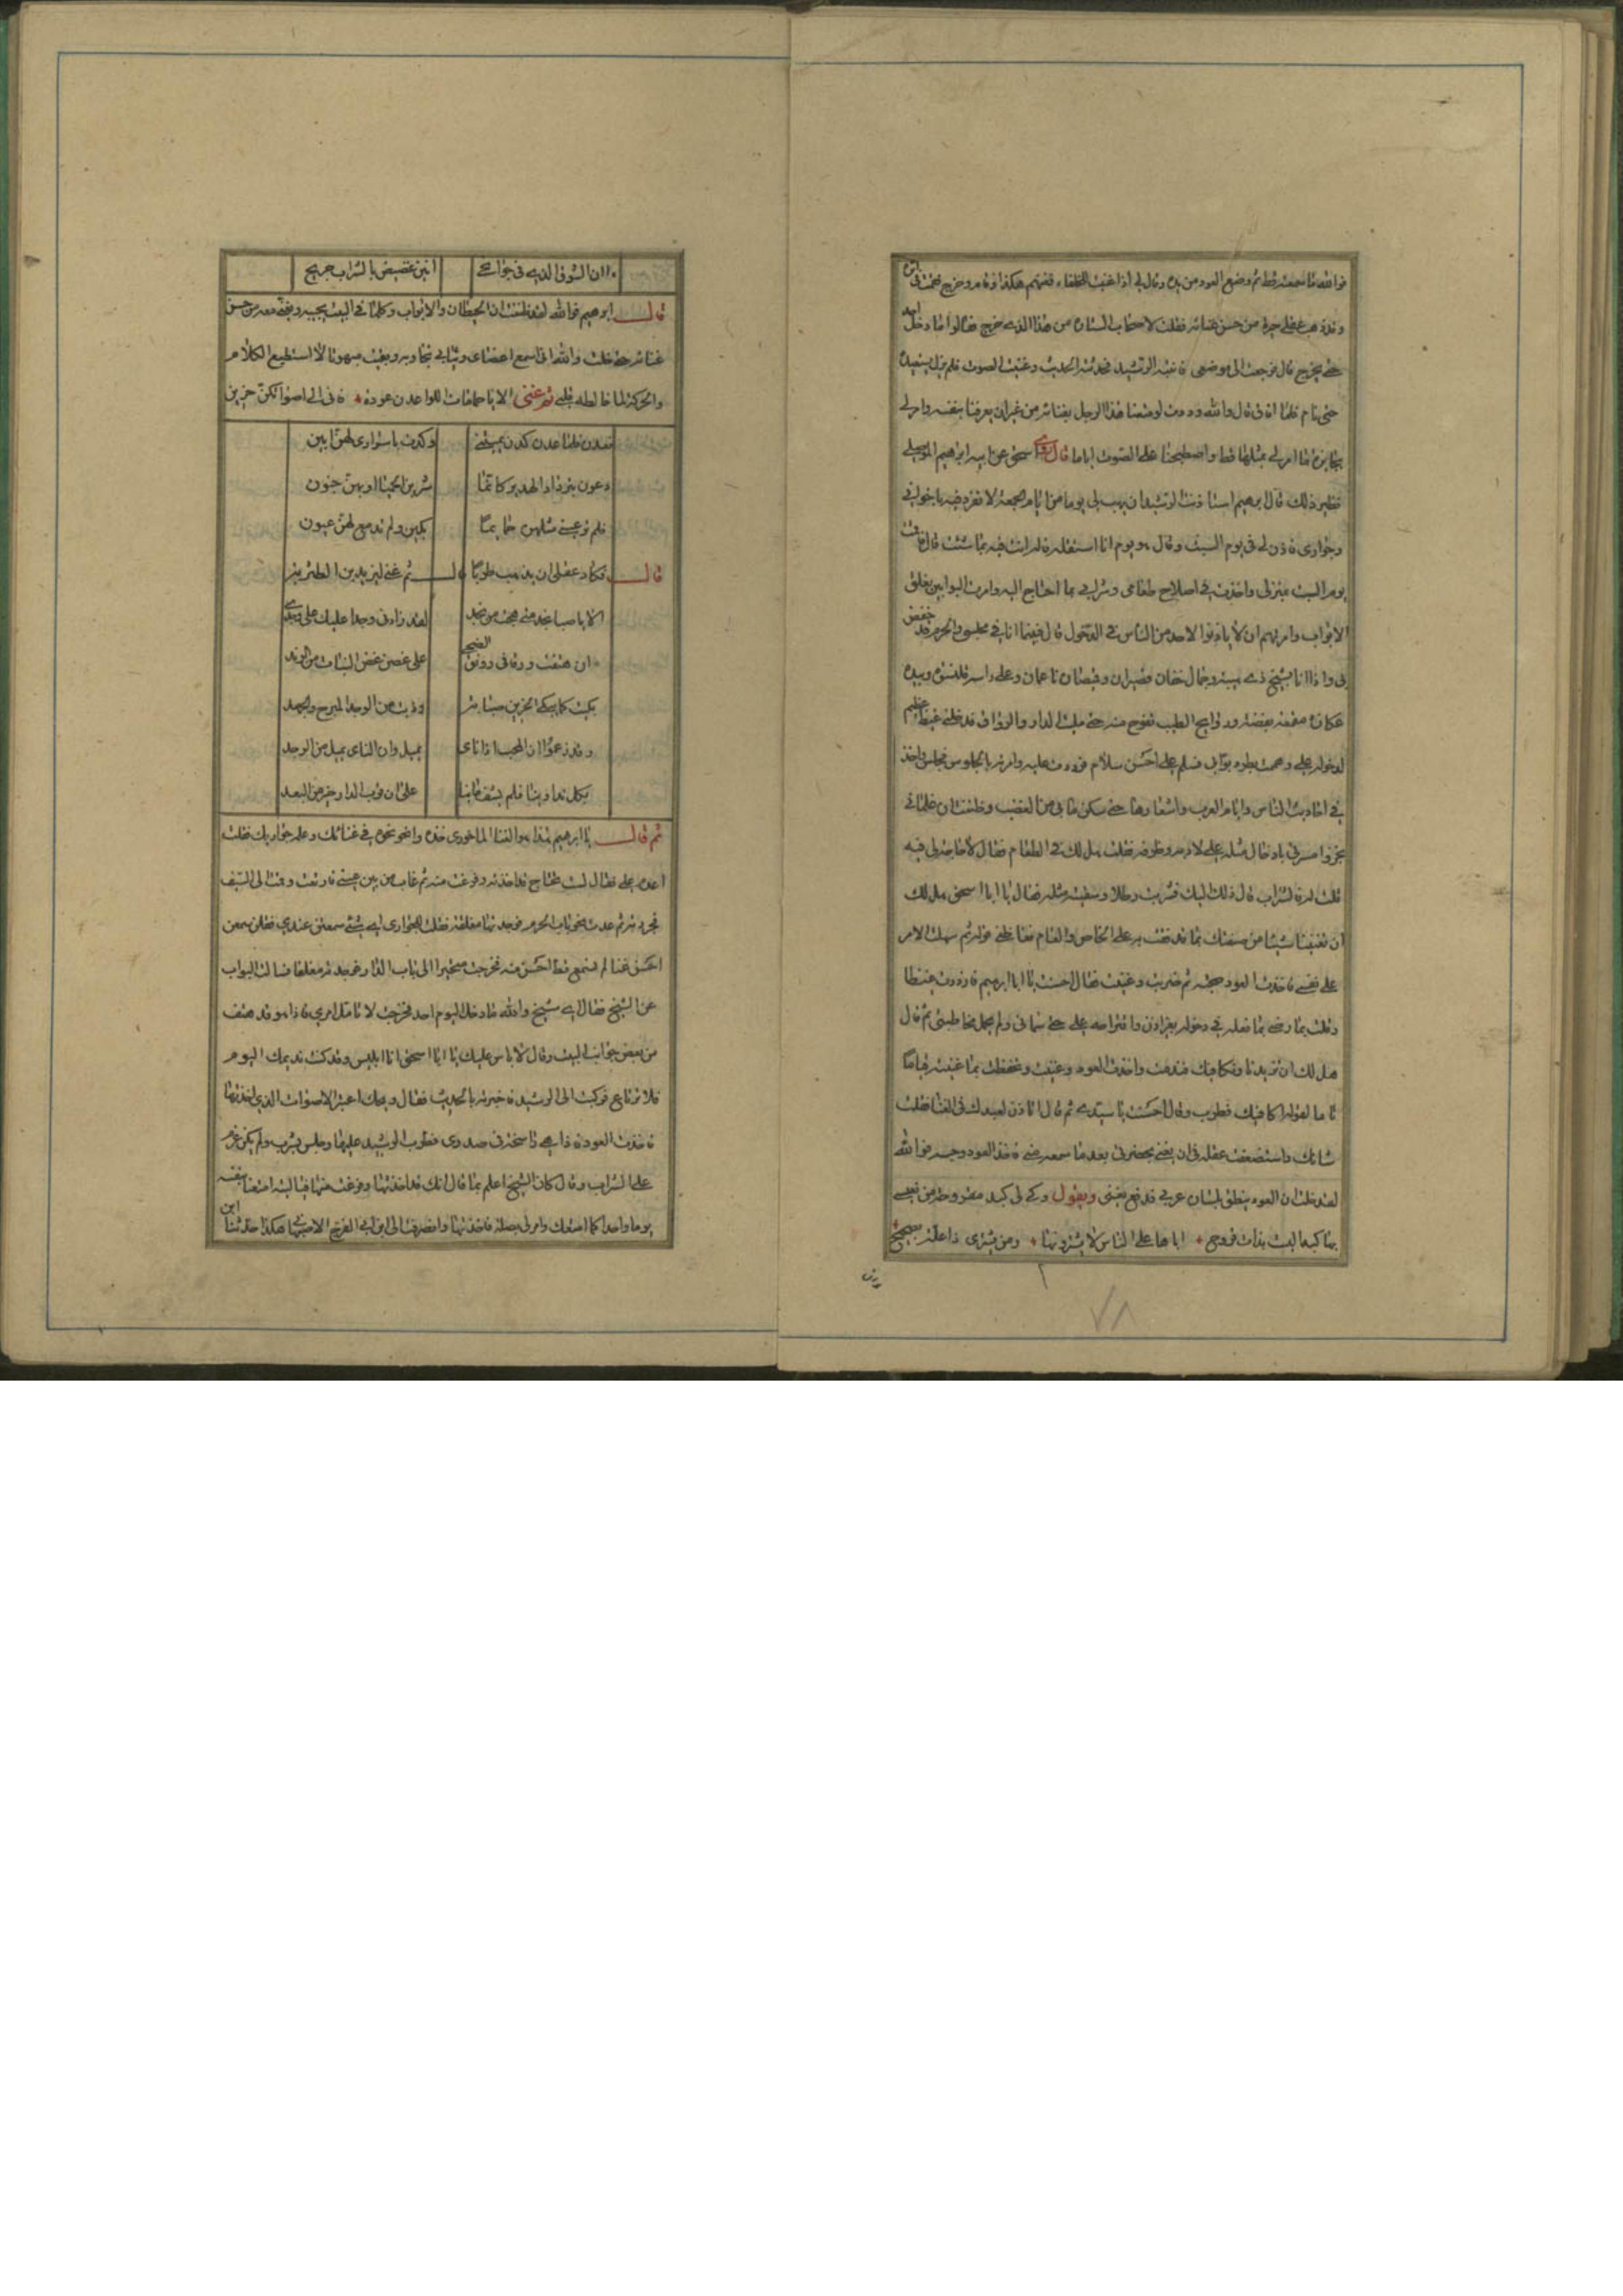 فوالله ما سمعته قط ثم وضع العود من يده وقال لي اذا غنيت الخلفاء فغنهم هكذا وقام وخرج فقمت في اثره
وقد ذهب عقلي حيرة من حسن غنائه فقلت لاصحاب الستارة من هذا الذي خرج فقالوا ما دخل احد
حتى يخرج قال فرجعت الى موضعي فانتبه الرشيد فحدثته الحديث وغنيت الصوت فلم يزل يستعيده
حتى نام فلما افاق قال والله وددت لو متعنا هذا الرجل بغنائه من غير ان يعرفنا بنفسه وامر لي
بجايزة ما امر لي بمثلها قط واصطبحنا على الصوت اياما قال روى اسحق عن ابيه ابراهيم الموصلي
نظير ذلك قال ابرهيم استاذنت الرشيد ان يهب لي يوما من ايام الجمعة لانفرد فيه باخواني
وجواري فاذن لي في يوم السبت وقال هو يوم انا استثقله فله انت فيه بما شئت قال فاقمت
يوم السبت بمنزلي واخذت في اصلاح طعامي وشرابي بما احتاج اليه وامرت البوابين بغلق
الابواب وامرتهم ان لا ياذنوا لاحد من الناس في الدخول قال فبينما انا في مجلسي والحرم قد حففن
بي واذا انا بشيخ ذي هيبة وجمال خفان قصيران وقميصان ناعمان وعلى راسه قلنسوة وبيده
عكازة مقمعة بفضة وروايح الطيب تفوح منه حتى ملت الدار والرواق فدخلني غيظ عظيم
لدخوله علي وهممت بطرد بوابي فسلم علي احسن سلام فرددت عليه وامرته بالجلوس فجلس واخذ
في احاديث الناس وايام العرب واشعارها حتى سكن ما بي من الغضب وظننت ان غلماني
تحروا مسرتي بادخال مثله علي لادبه وظرفه فقلت هل لك في الطعام فقال لا حاجة لي فيه
قلت له فالشراب قال ذلك اليك فشربت رطلا وسقيته مثله فقال يا ابا اسحق هل لك
ان تغنينا شيئا من صنعتك بما قد فقت به على الخاص والعام فغاظني قوله ثم سهلت الامر
على نفسي فاخذت العود فجسته ثم ضربت وغنيت فقال احسنت يا ابا ابرهيم فازددت غيظا
وقلت بما رضي بما فعله في دخوله بغير اذن واقتراحه علي حتى سماني ولم يجمل مخاطبتي ثم قال
هل لك ان تزيدنا ونكافيك فتذممت واخذت العود وغنيت وتحفظت بما غنيته قياما
تاما لقوله اكافيك فطرب وقال احسنت يا سيدي ثم قال اتاذن لعبدك في الغنا فقلت
شانك واستضعفت عقله في ان يغني بحضرتي بعد ما سمعه مني فاخذ العود وجسه فوالله
لقد خلت ان العود ينطق بلسان عربي فاندفع يغني ويقول ولي كبد مقروحة من يبيعني
بها كبدا ليست بذات قروح ٭ اباها على الناس لا يشترونها ٭ ومن يشتري ذا علة بصحيح
ائن من الشوق الذي في جوانحي
انين غصيص بالشراب جريح
قال ابرهيم فوالله لقد ظننت ان الحيطان والابواب وكلما في البيت يجيبه ويغني معه من حسن
غنائه حتى خلت والله اني اسمع اعضاي وثيابي تجاوبه وبقيت مبهوتا لا استطيع الكلام
والحركة لما خالطه قلبي ثم غنى الا يا حمامات اللوا عدن عودة ٭ فاني الى اصواتكن حزين
فعدن فلما عدن كدن يمتنني
وكدت باسراري لهن ابين
دعون بترداد الهدير كانما
شربن الحميا او بهن جنون
فلم تر عيني مثلهن حمايما
بكين ولم تدمع لهن عيون
قال فكاد عقلي ان يذهب طربا قال ثم غنى
الا يا صبا نجد متى هجت من نجد
لقد زادني وجدا عليك على وجدي
ان هتفت ورقا في رونق الضحى
على غصن غض النبات من الرند
بكيت كما يبكي الحزين صبابة
وذبت من الوجد المبرح والجهد
وقد زعموا ان المحب اذا ناى
يميل وان الناي يميل من الوجد
بكل تداوينا فلم يشف ما بنا
على ان قرب الدار خير من البعد
ثم قال يا ابرهيم هذا هو الغنا الماخوري خذه وانحو نحوه في غنائك وعلمه جواريك فقلت
اعده علي فقال لست تحتاج قد اخذته وفرغت منه ثم غاب من بين عيني فارتعت وقمت الى السيف
فجردته ثم عدت نحو باب الحرم فوجدتها مغلقة فقلت للجواري اي شيء سمعتن عندي فقلن سمعن
احسن غنا لم نسمع قط احسن منه فخرجت متحيرا الى باب الدار فوجدته مغلقا فسالت البواب
عن الشيخ فقال اي شيخ والله ما دخل اليوم احد فرجعت لاتامل امري فاذا هو قد هتف
من بعض جوانب البيت وقال لا باس عليك يا ابا اسحق انا ابليس وقد كنت نديمك اليوم
فلا ترتاع فركبت الى الرشيد فاخبرته بالحديث فقال ويحك اعتبر الاصوات الذي اخذتها
فاخذت العود فاذا هي راسخة في صدري فطرب الرشيد عليها وجلس يشرب ولم يكن عزم
على الشراب وقال كان الشيخ اعلم بما قال انك قد اخذتها وفرغت منها فياليته امتعنا بنفسه
يوما واحدا كما امتعك وامر لي بصلة فاخذتها وانصرفت الى ابن ابي الفرج الاصبهاني هكذا حدثنا ابن